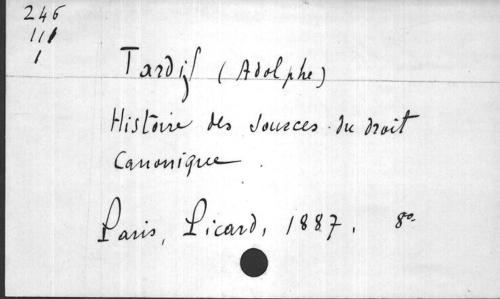 246
111
1
Tardif (Adolphe)
Histoire des sources du droit
Canonique.
Paris, Picard, 1887. 8o.